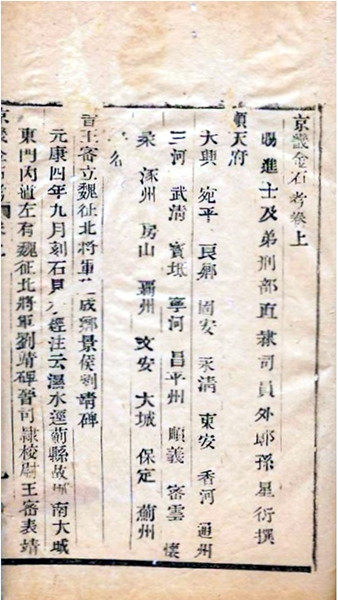 京畿金石考卷上
賜進士及第刑部直隸司員外郎孫星衍撰
順天府
大興 宛平 良鄉 固安 永清 東安 香河 通州
三河 武清 寶坻 寧河 昌平州 順義 密雲 懷
柔 涿州 房山 霸州 文安 大城 保定 薊州
晉王密立魏征北將軍 成鄉景侯劉靖碑
元康四年九月刻石見水經注云㶟水逕薊縣故城南大城
東門內道左有魏征北將軍劉靖碑晉司隸校尉王密表靖
京畿金石考 卷上